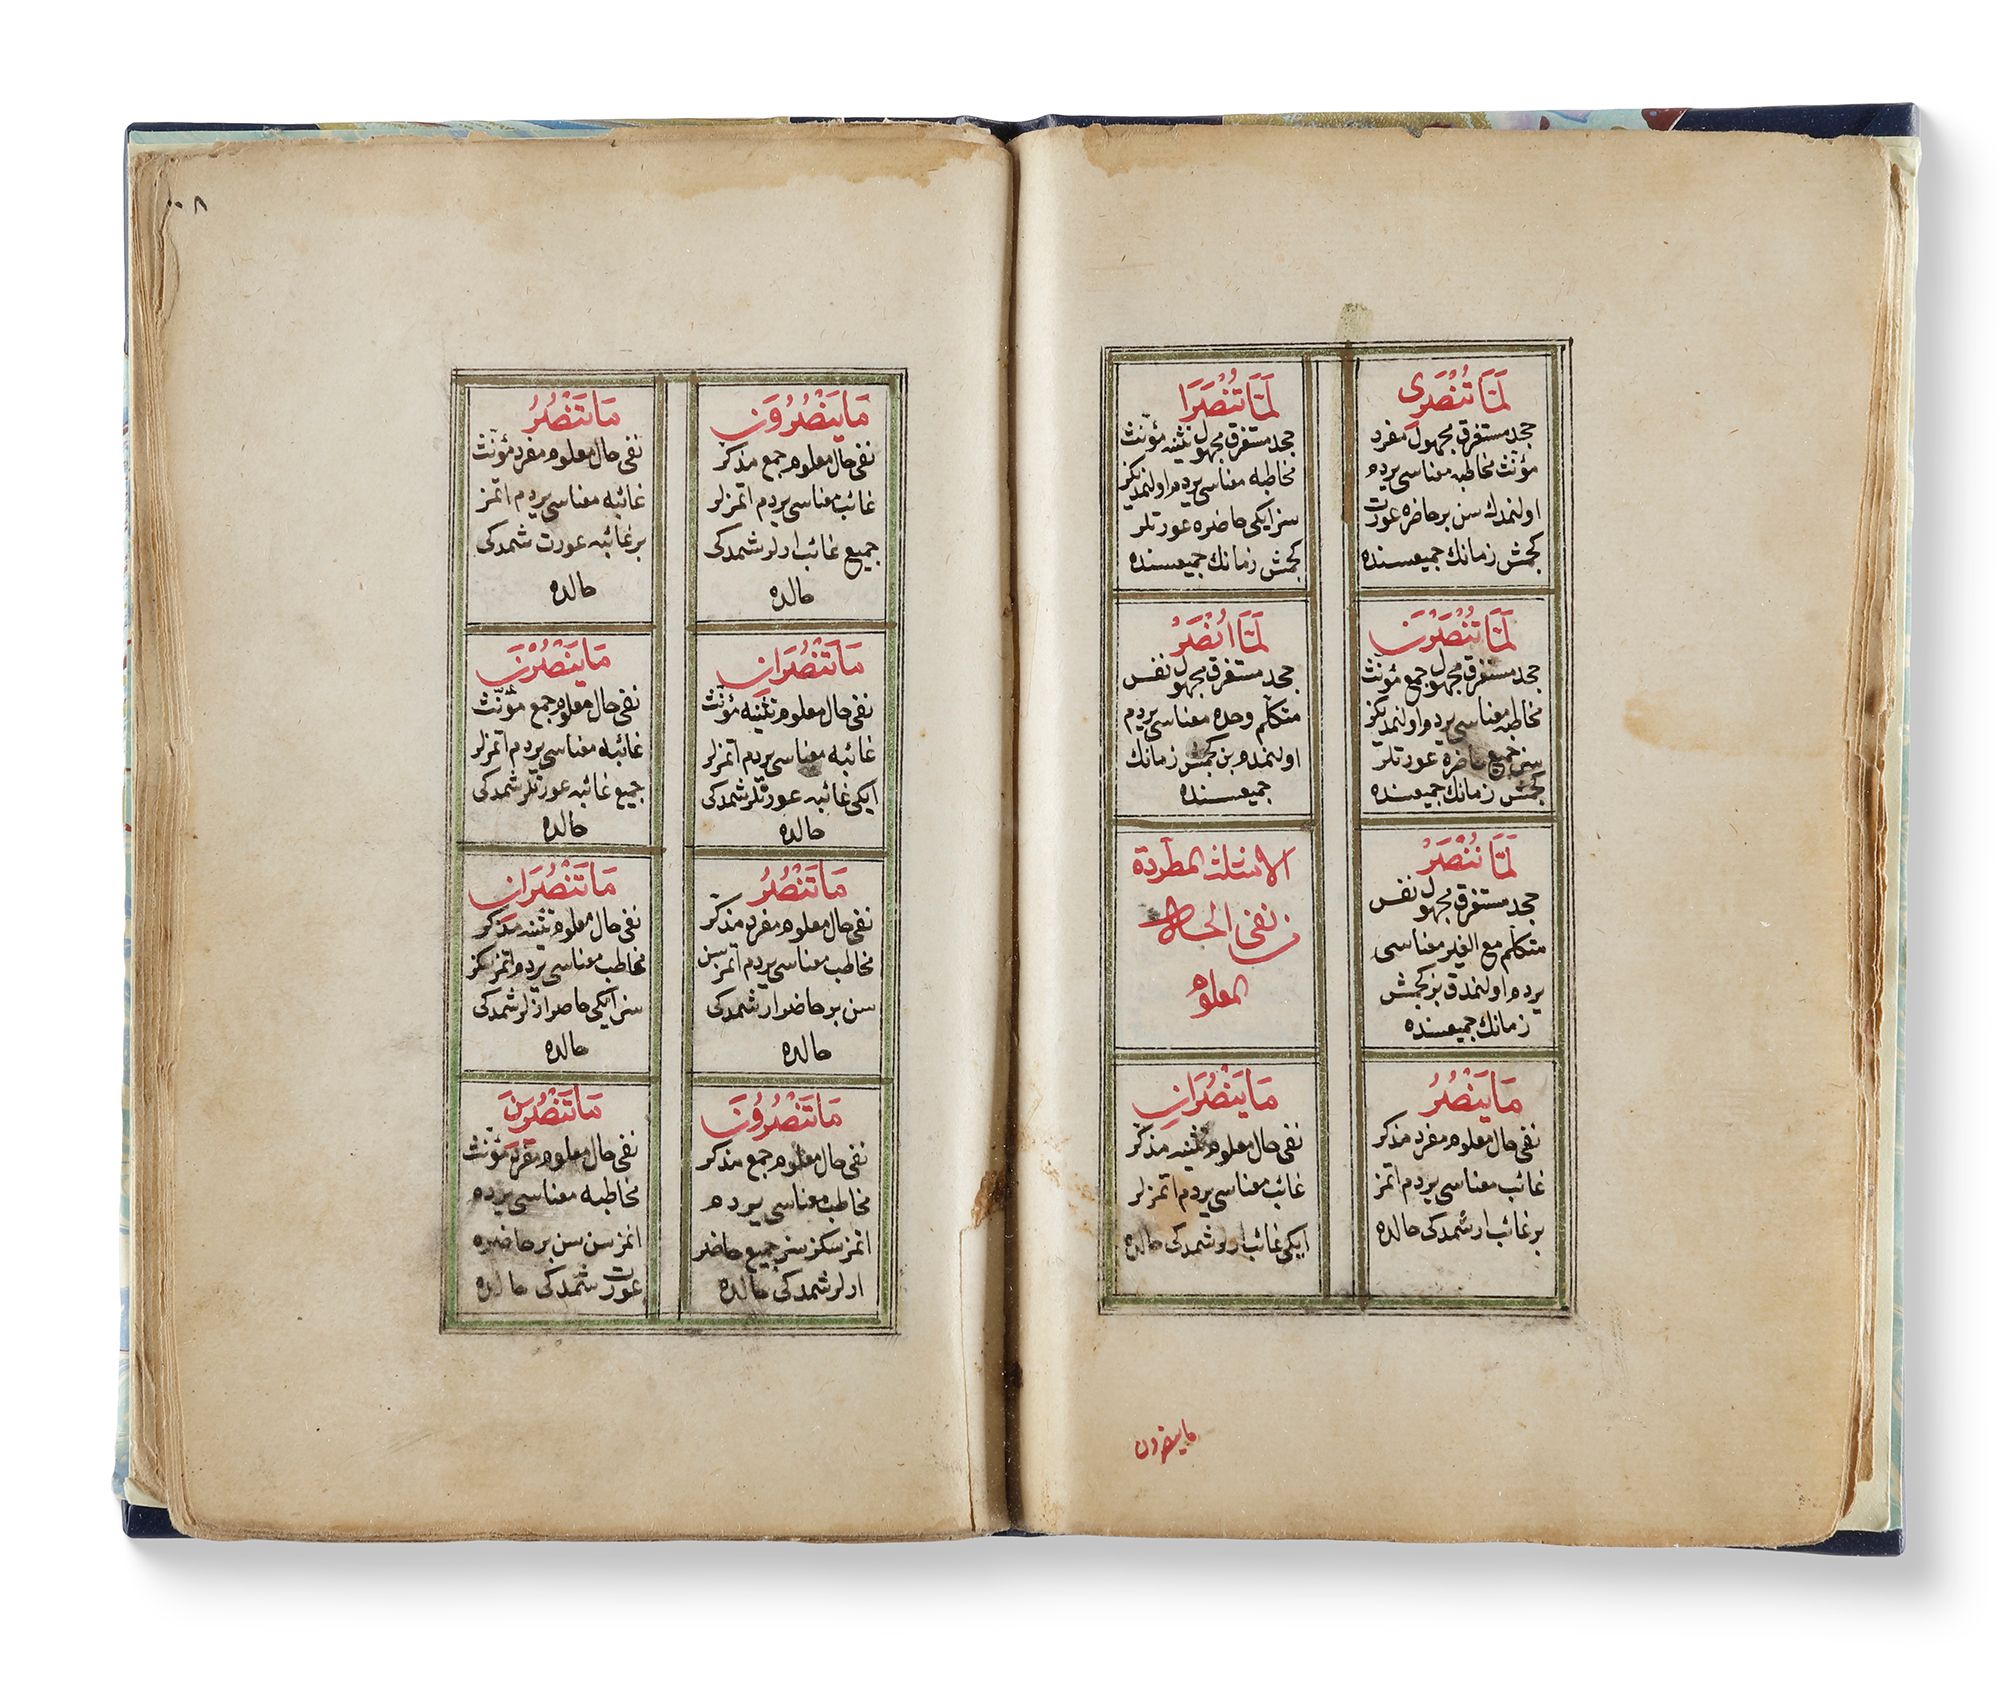 لَمَّا تُنْصَرِى
جحد مستغرق مجهول مفرد
مؤنث مخاطبه معناسى يردم
اولنمدك سن بر حاضره عورت
كچمش زمانك جميعسنده
لَمَّا تُنْصَرَا
جحد مستغرق مجهول تثنيه مؤنث
مخاطبه معناسى يردم اولنمديكز
سز ايكى حاضره عورتلر
كچمش زمانك جميعسنده
لَمَّا تُنْصَرْنَ
جحد مستغرق مجهول جمع مؤنث
مخاطبه معناسى يردم اولنمديكز
سز جميع حاضره عورتلر
كچمش زمانك جميعسنده
لَمَّا اُنْصَرْ
جحد مستغرق مجهول نفس
متكلم وحده معناسى يردم
اولنمدم بن كچمش زمانك
جميعسنده
لَمَّا نُنْصَرْ
جحد مستغرق مجهول نفس
متكلم مع الغير معناسى
يردم اولنمدق بز كچمش
زمانك جميعسنده
الامثلة المطردة
من نفى الحال
المعلوم
مَا يَنْصُرُ
نفى حال معلوم مفرد مذكر
غائب معناسى يردم اتمز
بر غائب ار شمدكى حالده
مَا يَنْصُرَانِ
نفى حال معلوم تثنيه مذكر
غائب معناسى يردم اتمزلر
ايكى غائب ارلر شمدكى حالده
ما ينصرون
٨
مَا يَنْصُرُونَ
نفى حال معلوم جمع مذكر
غائب معناسى يردم اتمزلر
جميع غائب ارلر شمدكى
حالده
مَا تَنْصُرُ
نفى حال معلوم مفرد مؤنث
غائبه معناسى يردم اتمز
بر غائبه عورت شمدكى
حالده
مَا تَنْصُرَانِ
نفى حال معلوم تثنيه مؤنث
غائبه معناسى يردم اتمزلر
ايكى غائبه عورتلر شمدكى
حالده
مَا يَنْصُرْنَ
نفى حال معلوم جمع مؤنث
غائبه معناسى يردم اتمزلر
جميع غائبه عورتلر شمدكى
حالده
مَا تَنْصُرُ
نفى حال معلوم مفرد مذكر
مخاطب معناسى يردم اتمز سن
سن بر حاضر ار شمدكى
حالده
مَا تَنْصُرَانِ
نفى حال معلوم تثنيه مذكر
مخاطب معناسى يردم اتمز سكز
سز ايكى حاضر ارلر شمدكى
حالده
مَا تَنْصُرُونَ
نفى حال معلوم جمع مذكر
مخاطب معناسى يردم
اتمز سكز سز جميع حاضر
ارلر شمدكى حالده
مَا تَنْصُرِينَ
نفى حال معلوم مفرد مؤنث
مخاطبه معناسى يردم
اتمز سن سن بر حاضره
عورت شمدكى حالده